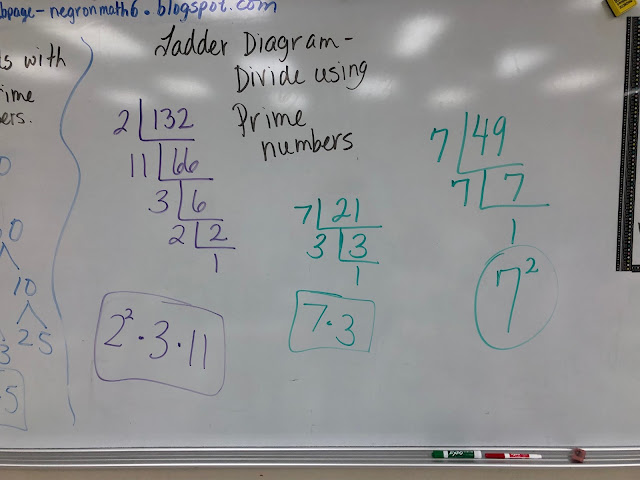 bpage - negronmath6.blogspot.com
ls with
rime
ers.
0
10
25
3
.5
Ladder Diagram -
Divide using
Prime
numbers
2 132
11 66
3 6
2 2
1
2² · 3 · 11
7 21
3 3
1
7 · 3
7 49
7 7
1
7²
EXPO